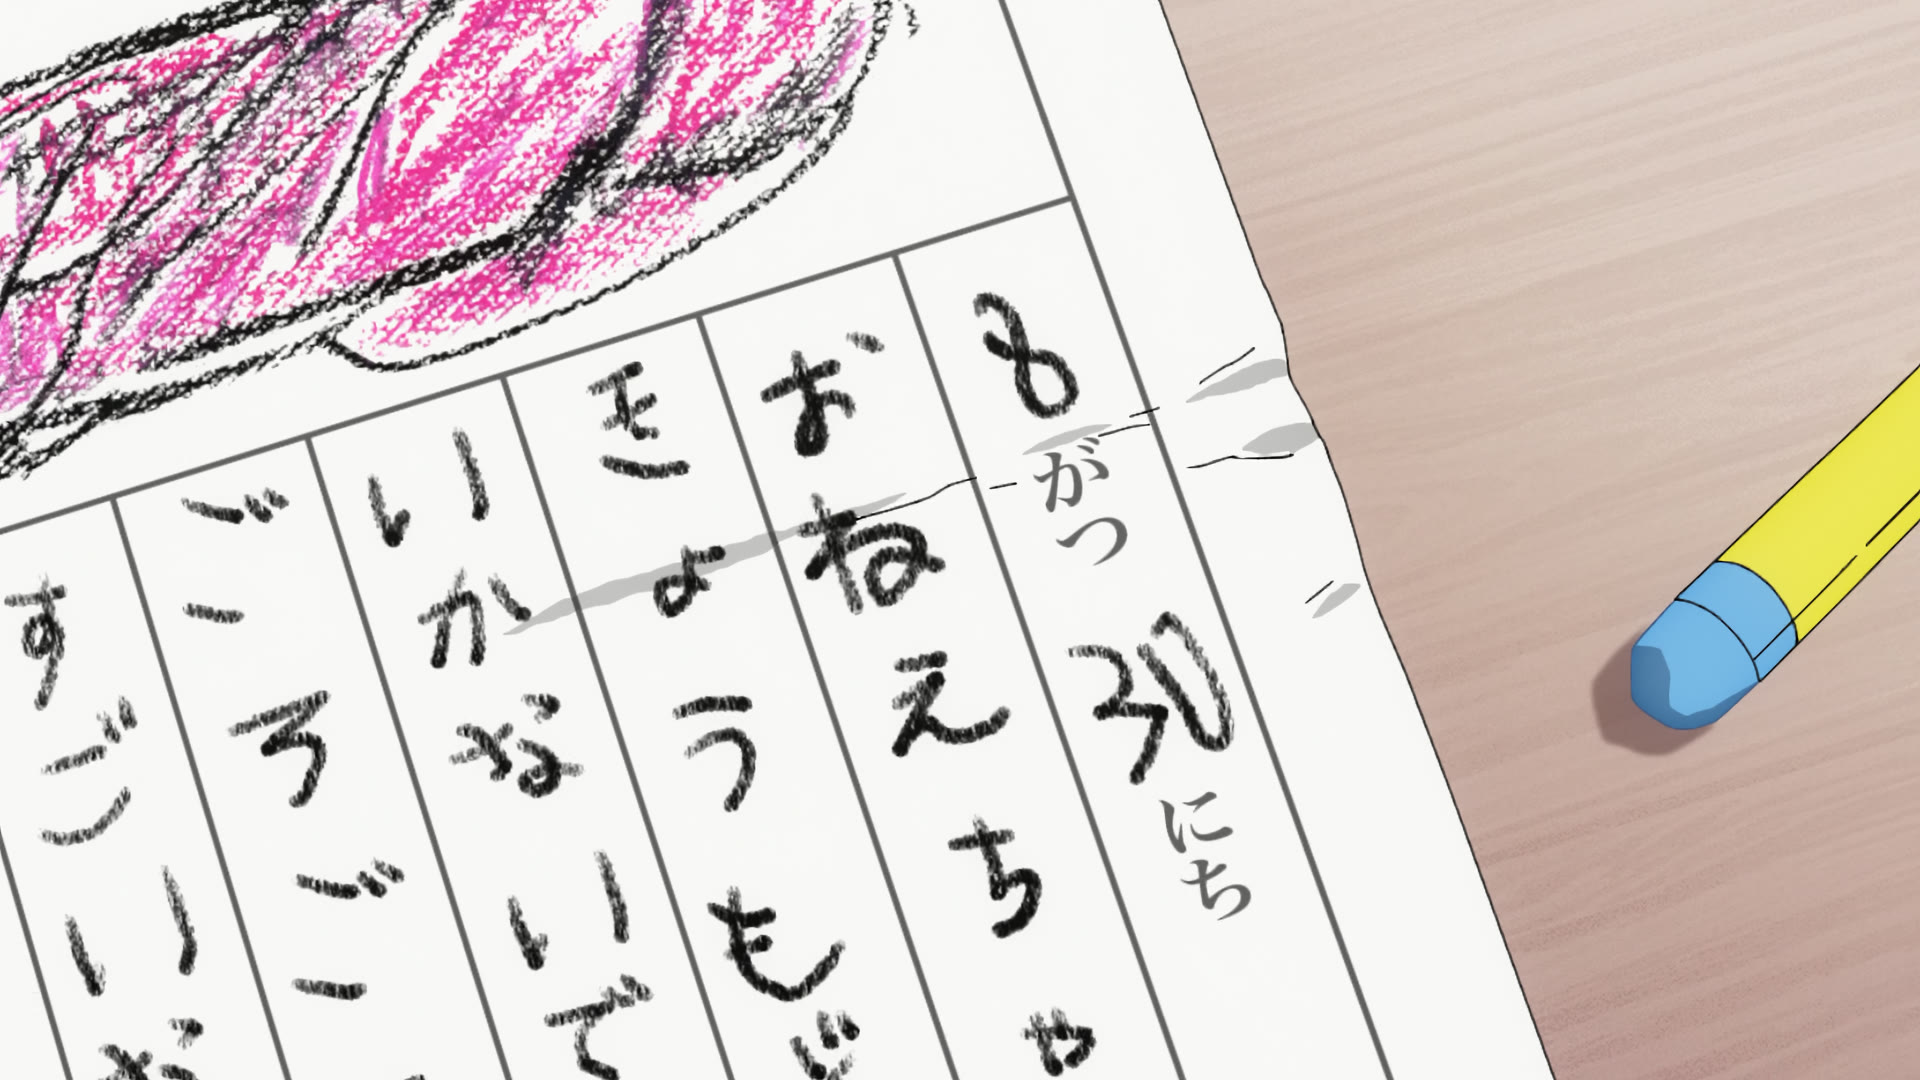 8がつ30にち
おねえちゃ
きょうも
いかないで
ごろご
すごい